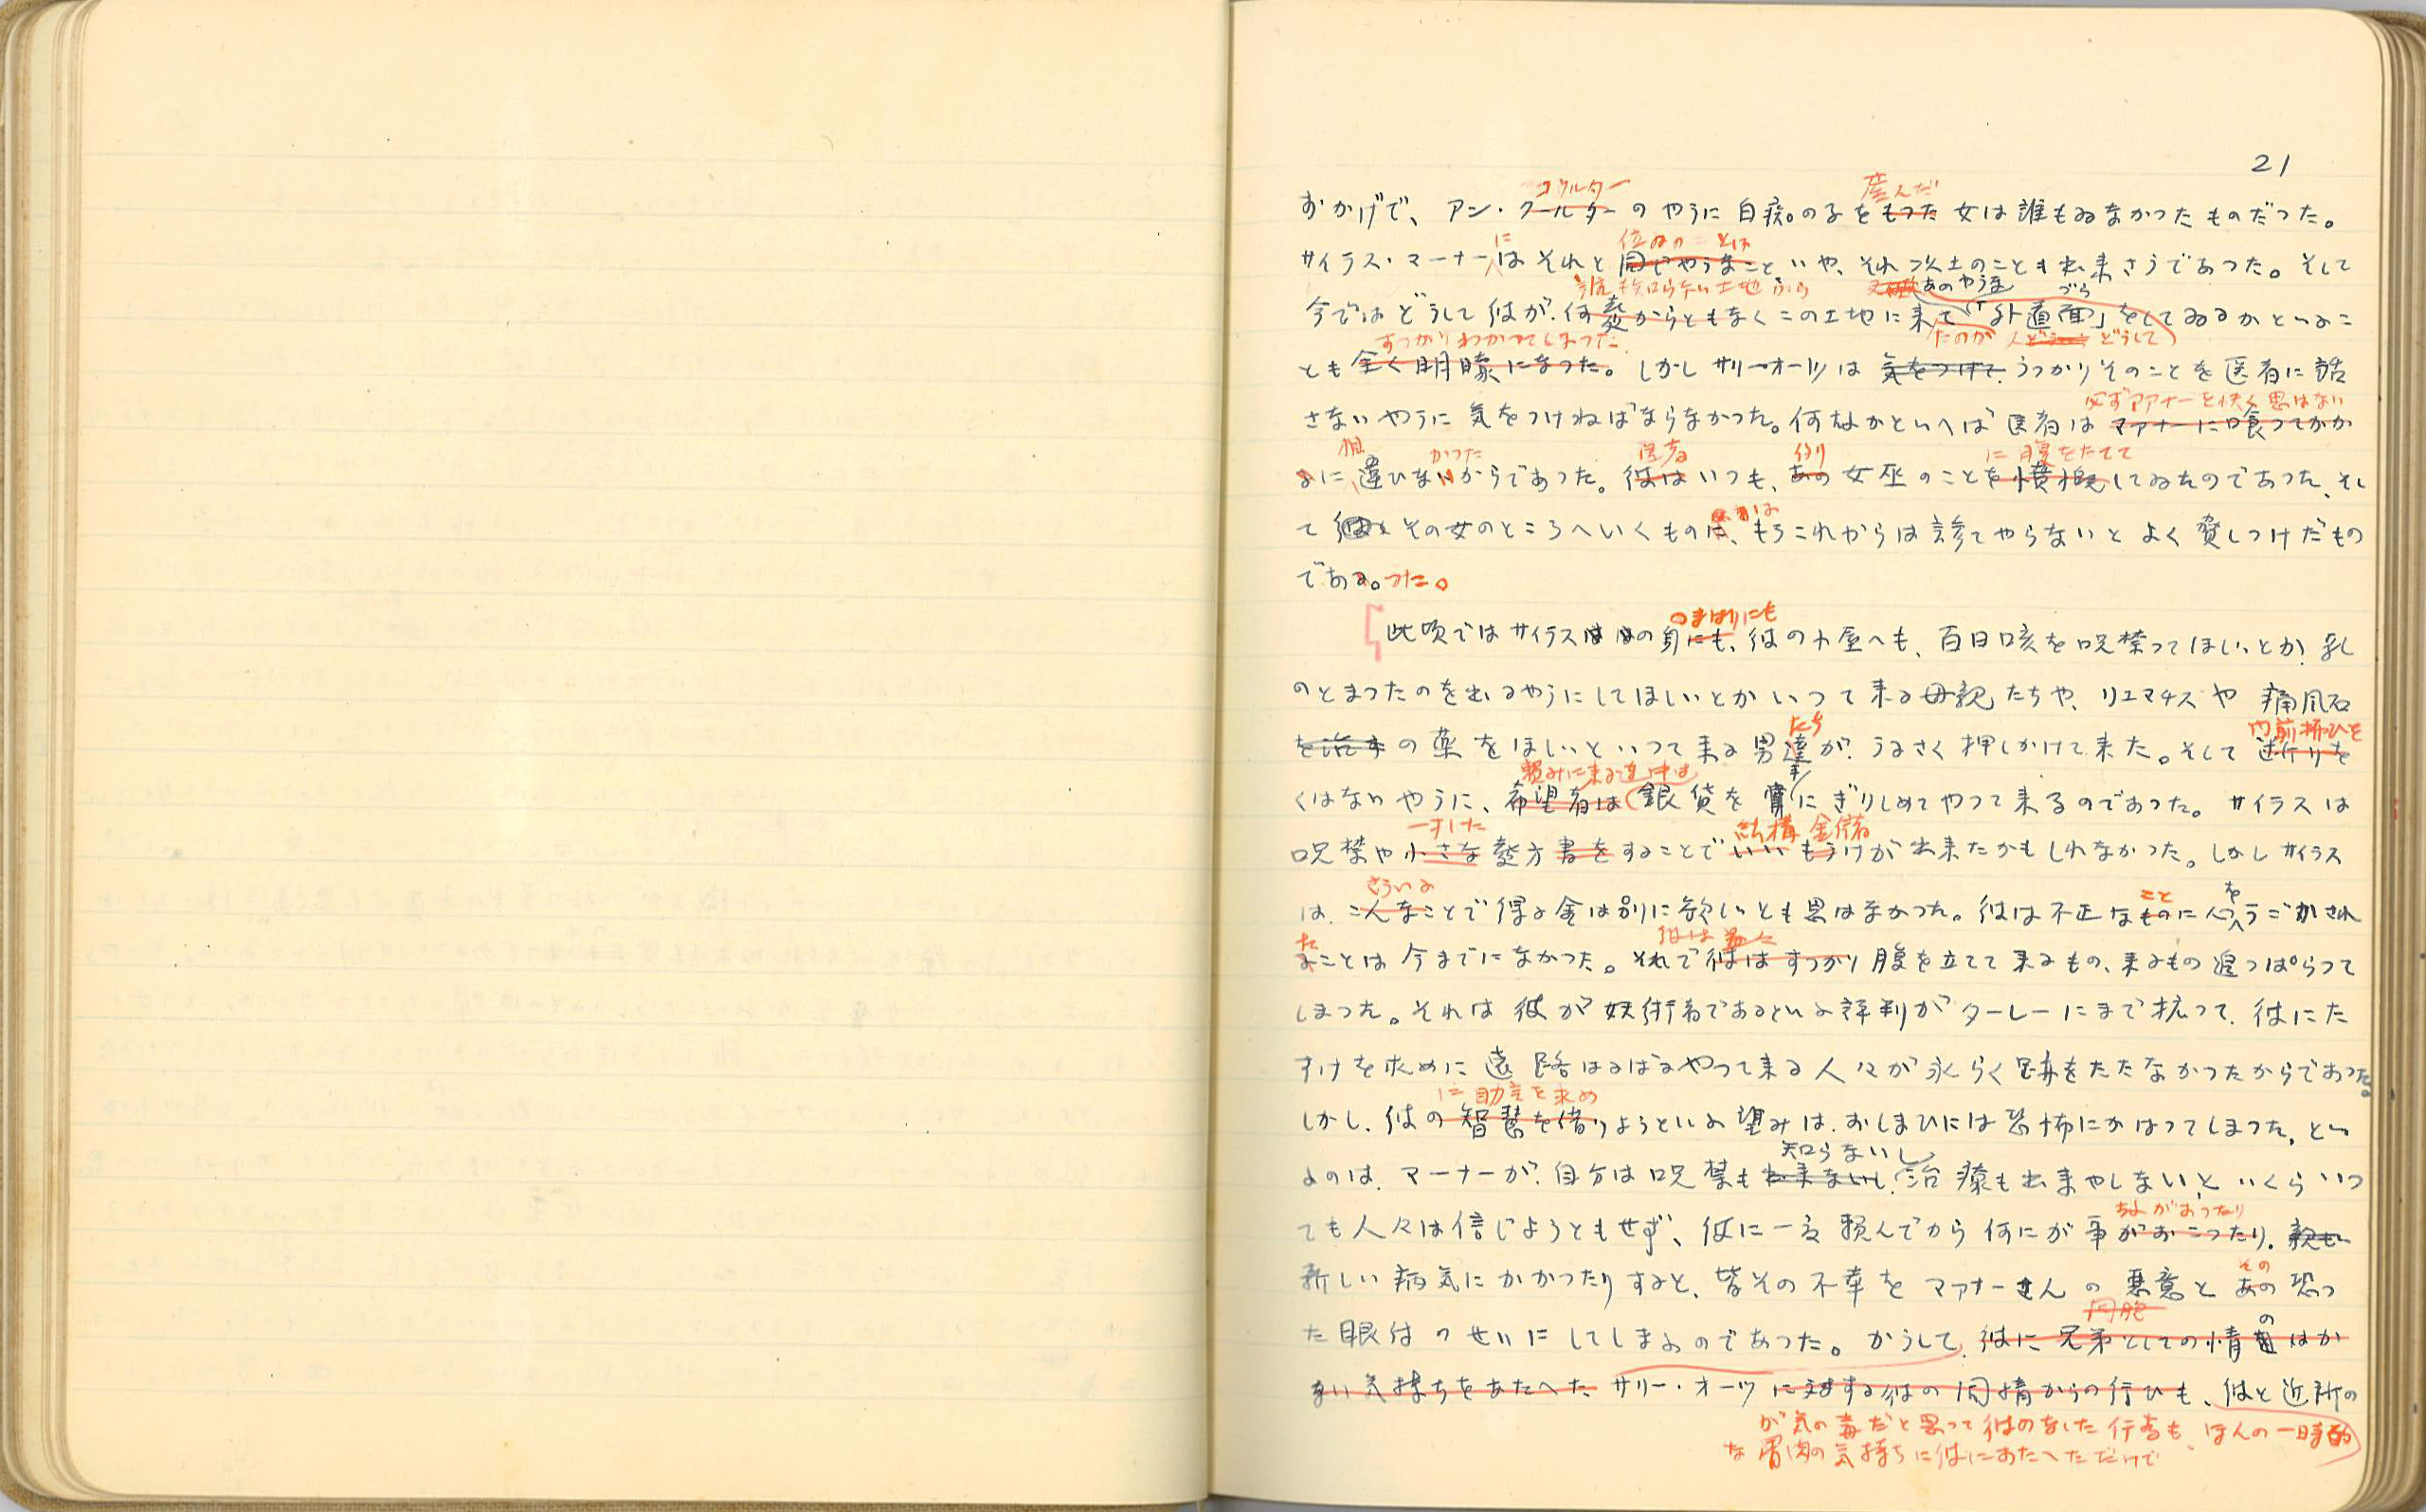 21
コウルター 産んだ
おかげで、アン・クールターのやうに白痴の子をもつた女は誰もゐなかつたものだつた。
に 位ゐのことは
サイラス・マーナーはそれと同じやうなこと、いや、それ以上のことも出来さうであつた。そして
誰も知らない土地から あのやうな づら
今ではどうして彼が、何処からともなくこの土地に来て「外道面」をしてゐるかといふこ
すつかりわかつてしまつた たのか どうして
とも全く明瞭になつた。しかしサリー・オーツは気をつけて、うつかりそのことを医者に話
必ずマアナーを快く思はない
さないやうに気をつけねばならなかつた。何故かといへば医者はマアナーに喰つてかか
相 かつた 医者 例り に腹をたてて
るに違ひないからであつた。彼はいつも、あの女巫のことを憤慨してゐたのであつた、そし
医者は
て彼はその女のところへいくものは、もうこれからは診てやらないとよく脅しつけたもの
である。つた。
のまはりにも
此頃ではサイラスはの身にも、彼の小屋へも、百日咳を呪禁つてほしいとか、乳
のとまつたのを出るやうにしてほしいとかいつて来る母親たちや、リユマチスや痛風石
たち 門前拂ひを
を治すの薬をほしいといつて来る男達が、うるさく押しかけて来た。そして断りを
頼みに来る連中は 手
くはないやうに、希望者は銀貨をにぎりしめてやつて来るのであつた。サイラスは
一寸した 結構 金儲
呪禁や小さな処方書をすることでいいもうけが出来たかもしれなかつた。しかしサイラス
さういふ こと を
は、こんなことで得る金は別に欲しいとも思はなかつた。彼は不正なものに心うごかされ
た 彼は
ることは今までになかつた。それで彼はすつかり腹を立てて来るもの、来るもの追つぱらつて
しまつた。それは彼が妖術者であるといふ評判がターレーにまで拡つて、彼にた
すけを求めに遠路はるばるやつて来る人々が永らく跡をたたなかつたからであつた。
に助言を求め
しかし、彼の智慧を借りようといふ望みは、おしまひには恐怖にかはつてしまつた、とい
知らないし
ふのは、マーナーが、自分は呪禁も出来ないし、治療も出来やしない、といくらいつ
ちよがあつたり
ても人々は信じようともせず、彼に一度頼んでから何にか事がおこつたり、
その
新しい病気にかかつたりすると、皆その不幸をマアナーさんの悪意とあの恐つ
同胞 の
た眼付のせいにしてしまふのであつた。かうして、彼に兄弟としての情はか
ない気持ちをあたへたサリー・オーツに対する彼の同情からの行ひも、彼と近所の
が気の毒だと思つて彼のなした行為も、ほんの一時的
な骨肉の気持ちに彼にあたへただけで